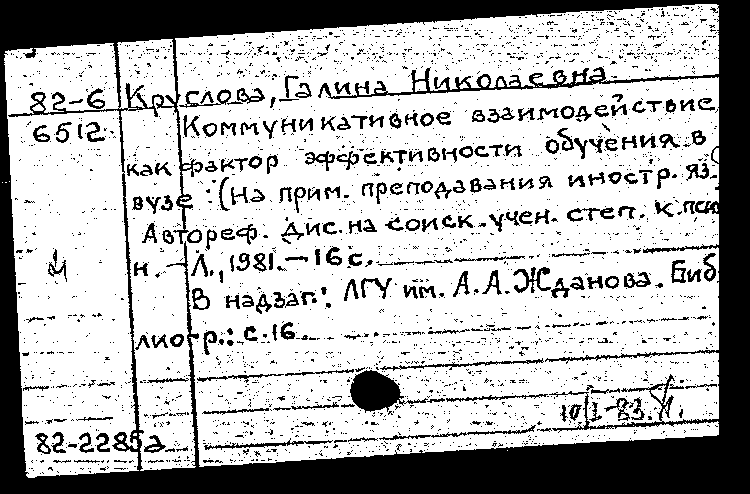 82-6 Круслова, Галина Николаевна.
6512 Коммуникативное взаимодействие
как фактор эффективности обучения в
вузе : (На прим. преподавания иностр. яз.
Автореф. дис. на соиск. учен. степ. к. псих
н. - Л., 1981. - 16 с.
В надзаг: ЛГУ им. А. А. Жданова. Биб
лиогр.: с. 16.
82-2285а